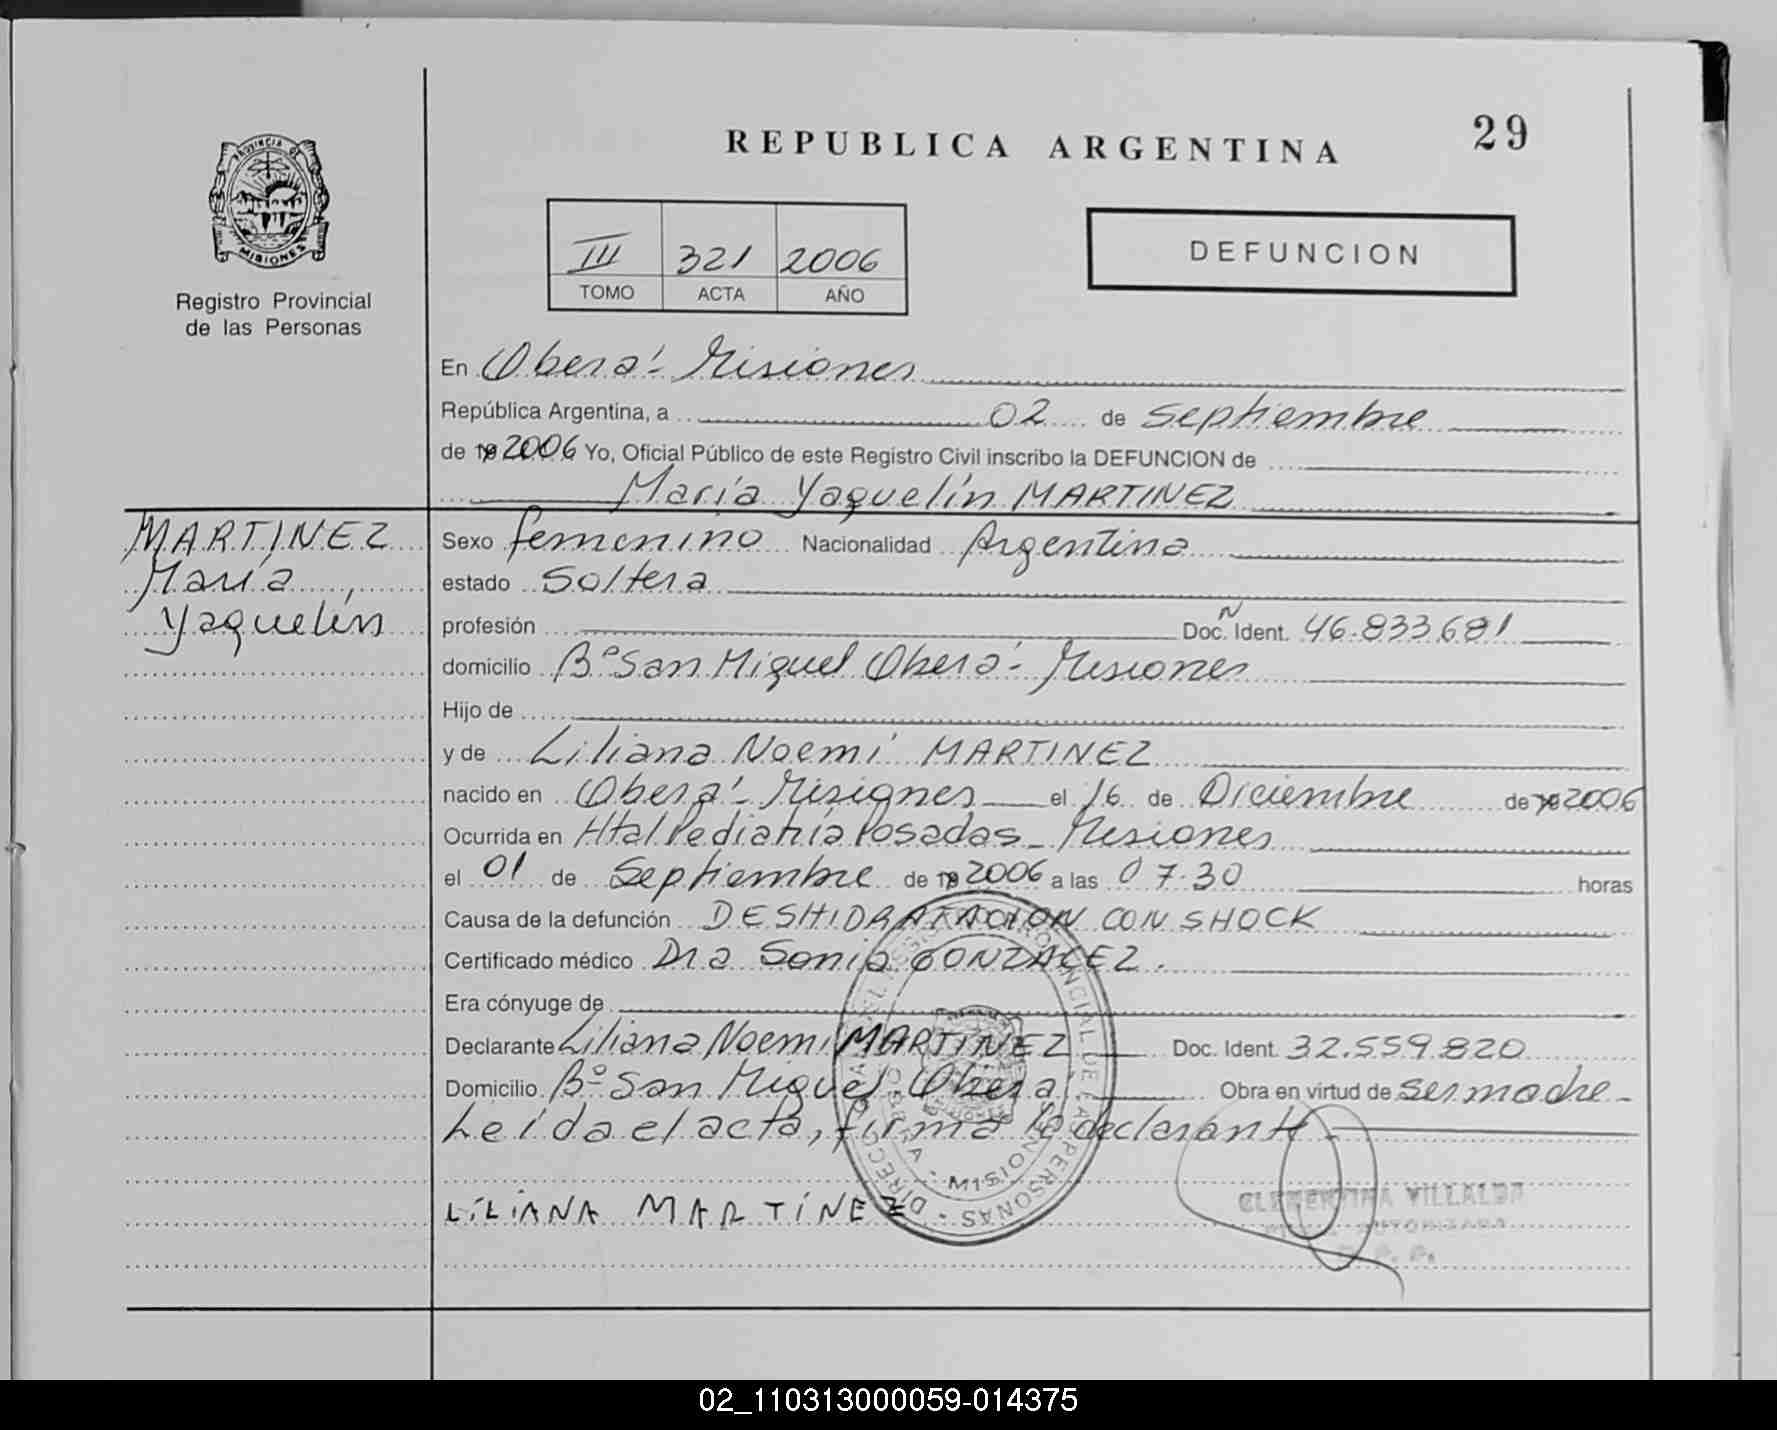 REPUBLICA ARGENTINA
29
PROVINCIA DE
MISIONES
Registro Provincial
de las Personas
III 321 2006
TOMO ACTA AÑO
DEFUNCION
En Oberá - Misiones
República Argentina, a 02 de Septiembre
de 19 2006 Yo, Oficial Público de este Registro Civil inscribo la DEFUNCION de
María Yaquelín MARTINEZ
MARTINEZ
María
Yaquelín
Sexo femenino Nacionalidad Argentina
estado Soltera
profesión Doc. N Ident. 46.833.681
domicilio Bº San Miguel Oberá - Misiones
Hijo de
y de Liliana Noemí MARTINEZ
nacido en Oberá - Misiones el 16 de Diciembre de 19 2006
Ocurrida en Htal Pediatría Posadas - Misiones
el 01 de Septiembre de 19 2006 a las 07.30 horas
Causa de la defunción DESHIDRATACION CON SHOCK
Certificado médico Dra Sonia GONZALEZ.
Era cónyuge de
Declarante Liliana Noemí MARTINEZ Doc. Ident. 32.559.820
Domicilio Bº San Miguel Oberá Obra en virtud de ser madre -
Leída el acta, firma la declarante -
LILIANA MARTÍNEZ
CLEMENTINA VILLALBA
AUTORIZADA
DIRECCION DEL REGISTRO PROVINCIAL DE LAS PERSONAS
OBERA - MISIONES
02_110313000059-014375